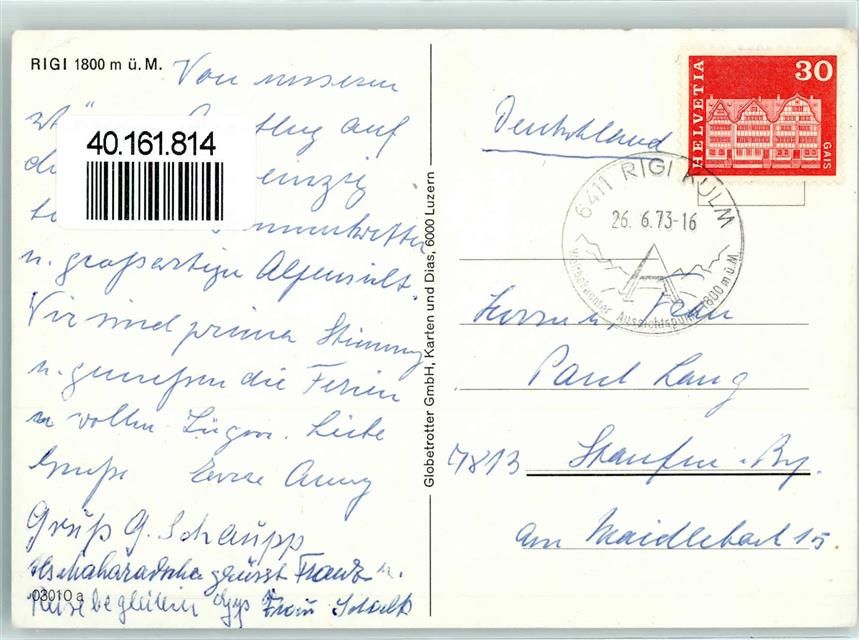 RIGI 1800 m ü. M.
Von unseren
auf
40.161.814
einzig
u. großartige Alpensicht.
Wir sind prima Stimmung
u. genießen die Ferien
in vollen Zügen. Liebe
Grüße Eure Anny
Gruß G. Schaupp
grüsst Franz u.
Reisebegleiterin Frau
03010 a
Globetrotter GmbH, Karten und Dias, 6000 Luzern
Deutschland
HELVETIA
30
GAIS
6411 RIGI KULM
26. 6.73-16
Weltbekannter Aussichtspunkt 1800 m ü. M.
Herrn u. Frau
Paul Lang
7813 Staufen
am Maidlebach 15